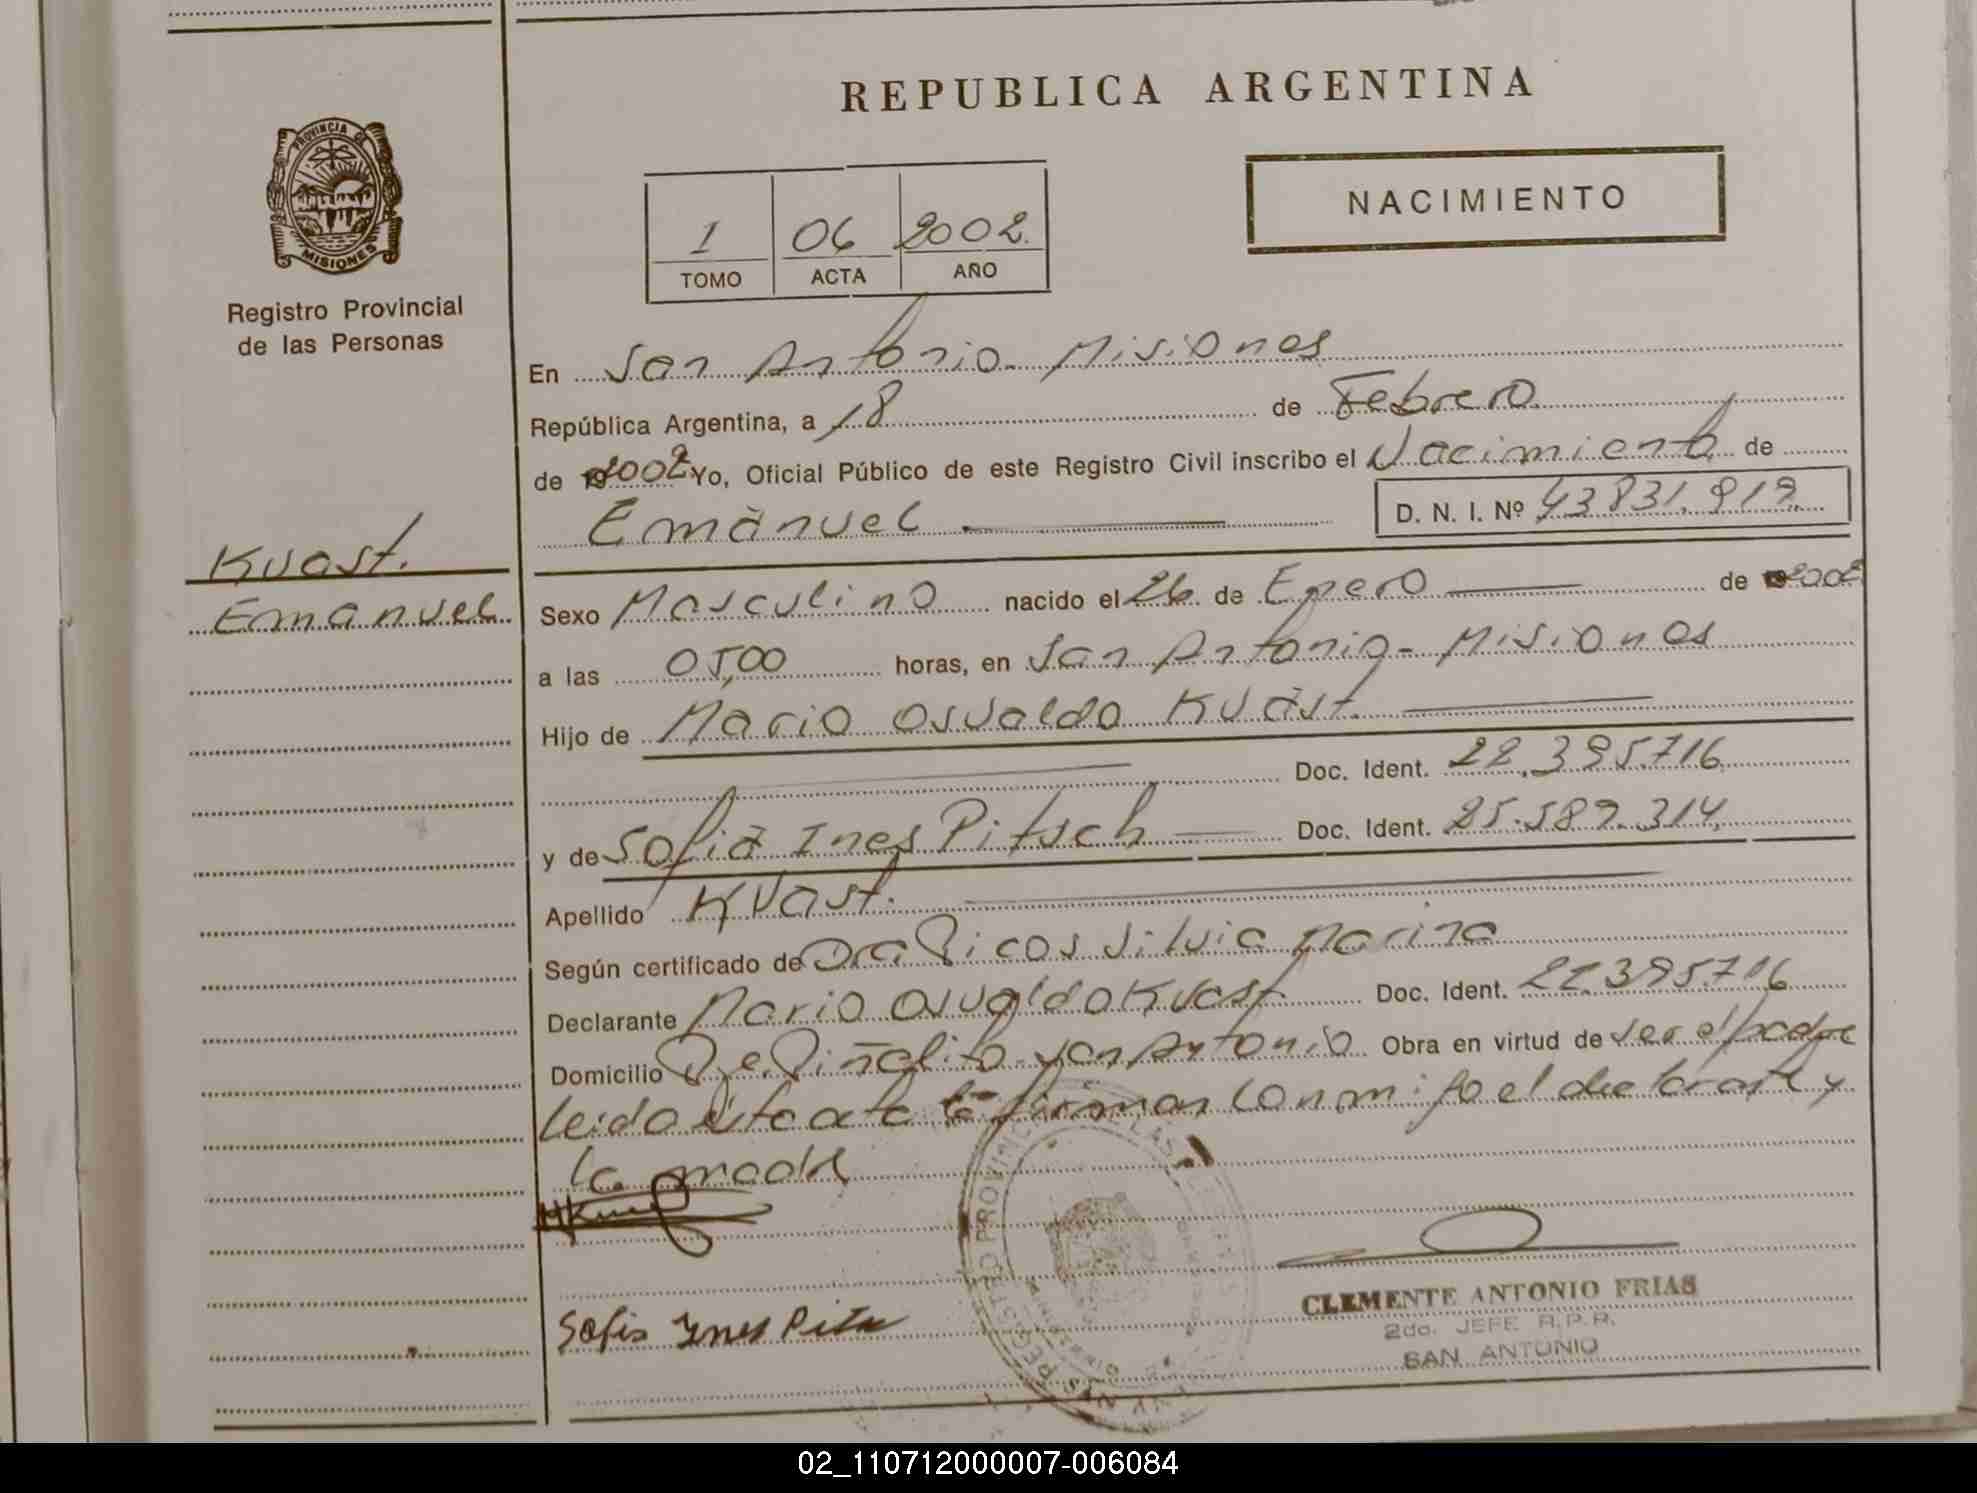 REPUBLICA ARGENTINA
NACIMIENTO
1 06 2002
TOMO ACTA AÑO
PROVINCIA DE
MISIONES
Registro Provincial
de las Personas
Kuast.
Emanuel
En San Antonio - Misiones
República Argentina, a 18 de Febrero
de 2002 Yo, Oficial Público de este Registro Civil inscribo el Nacimiento de
Emanuel D. N. I. Nº 43.831.919
Sexo Masculino nacido el 26 de Enero de 2002
a las 05,00 horas, en San Antonio - Misiones
Hijo de Mario Osvaldo Kuast.
Doc. Ident. 22.395.716
y de Sofia Ines Pitsch Doc. Ident. 25.589.314
Apellido Kuast.
Según certificado de Dra Picos Silvia Marina
Declarante Mario Osvaldo Kuast Doc. Ident. 22.395.716
Domicilio Piñalito San Antonio Obra en virtud de ser el padre
Leido esta acta la firman conmigo el declarante y
la madre
Sofia Ynes Pits
CLEMENTE ANTONIO FRIAS
2do. JEFE R.P.R.
SAN ANTONIO
02_110712000007-006084